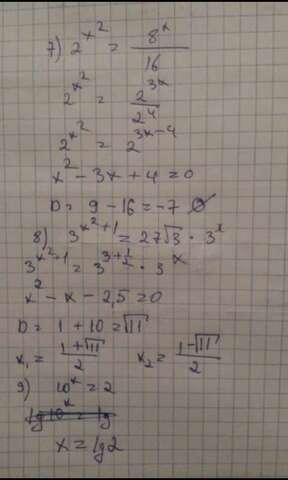 7) 2^{x^2} = \frac{8^x}{16}
2^{x^2} = \frac{2^{3x}}{2^4}
2^{x^2} = 2^{3x-4}
x^2 - 3x + 4 = 0
D = 9 - 16 = -7 ∅
8) 3^{x^2+1} = 27√3 · 3^x
3^{x^2+1} = 3^{3+\frac{1}{2}} · 3^x
x^2 - x - 2,5 = 0
D = 1 + 10 = √11
x_1 = \frac{1+√11}{2} x_2 = \frac{1-√11}{2}
9) 10^x = 2
lg 10^x = lg
x = lg2